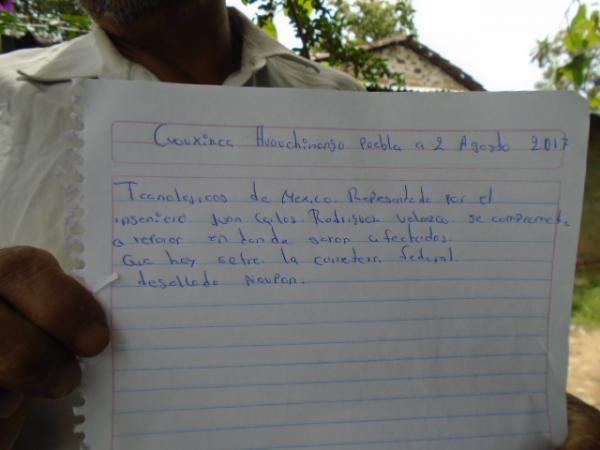 Cuauxinca Huauchinango Puebla a 2 Agosto 2017
Tecnologicos de Mexico. Representado por el
ingeniero Juan Carlos Rodriguez Velazco se compromete
a reparar en donde seran afectados.
que hay sobre la carretera federal
Naupan.